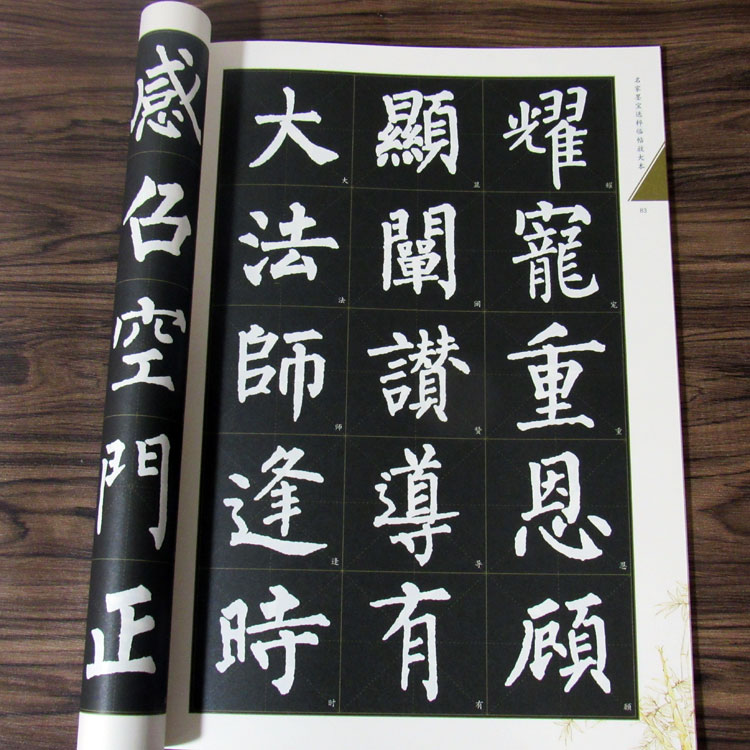 名家墨宝选粹临帖放大本
耀寵重恩顧
耀宠重恩顾
顯闡讚導有
显阐赞导有
大法師逢時
大法师逢时
感召空門正